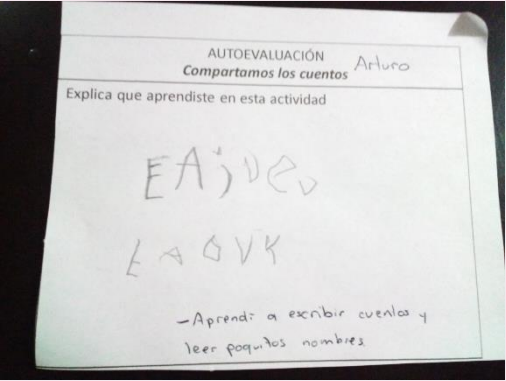 AUTOEVALUACIÓN
Compartamos los cuentos Arturo
Explica que aprendiste en esta actividad
EAjvev
EAOVK
-Aprendi a escribir cuentos y
leer poquitos nombres